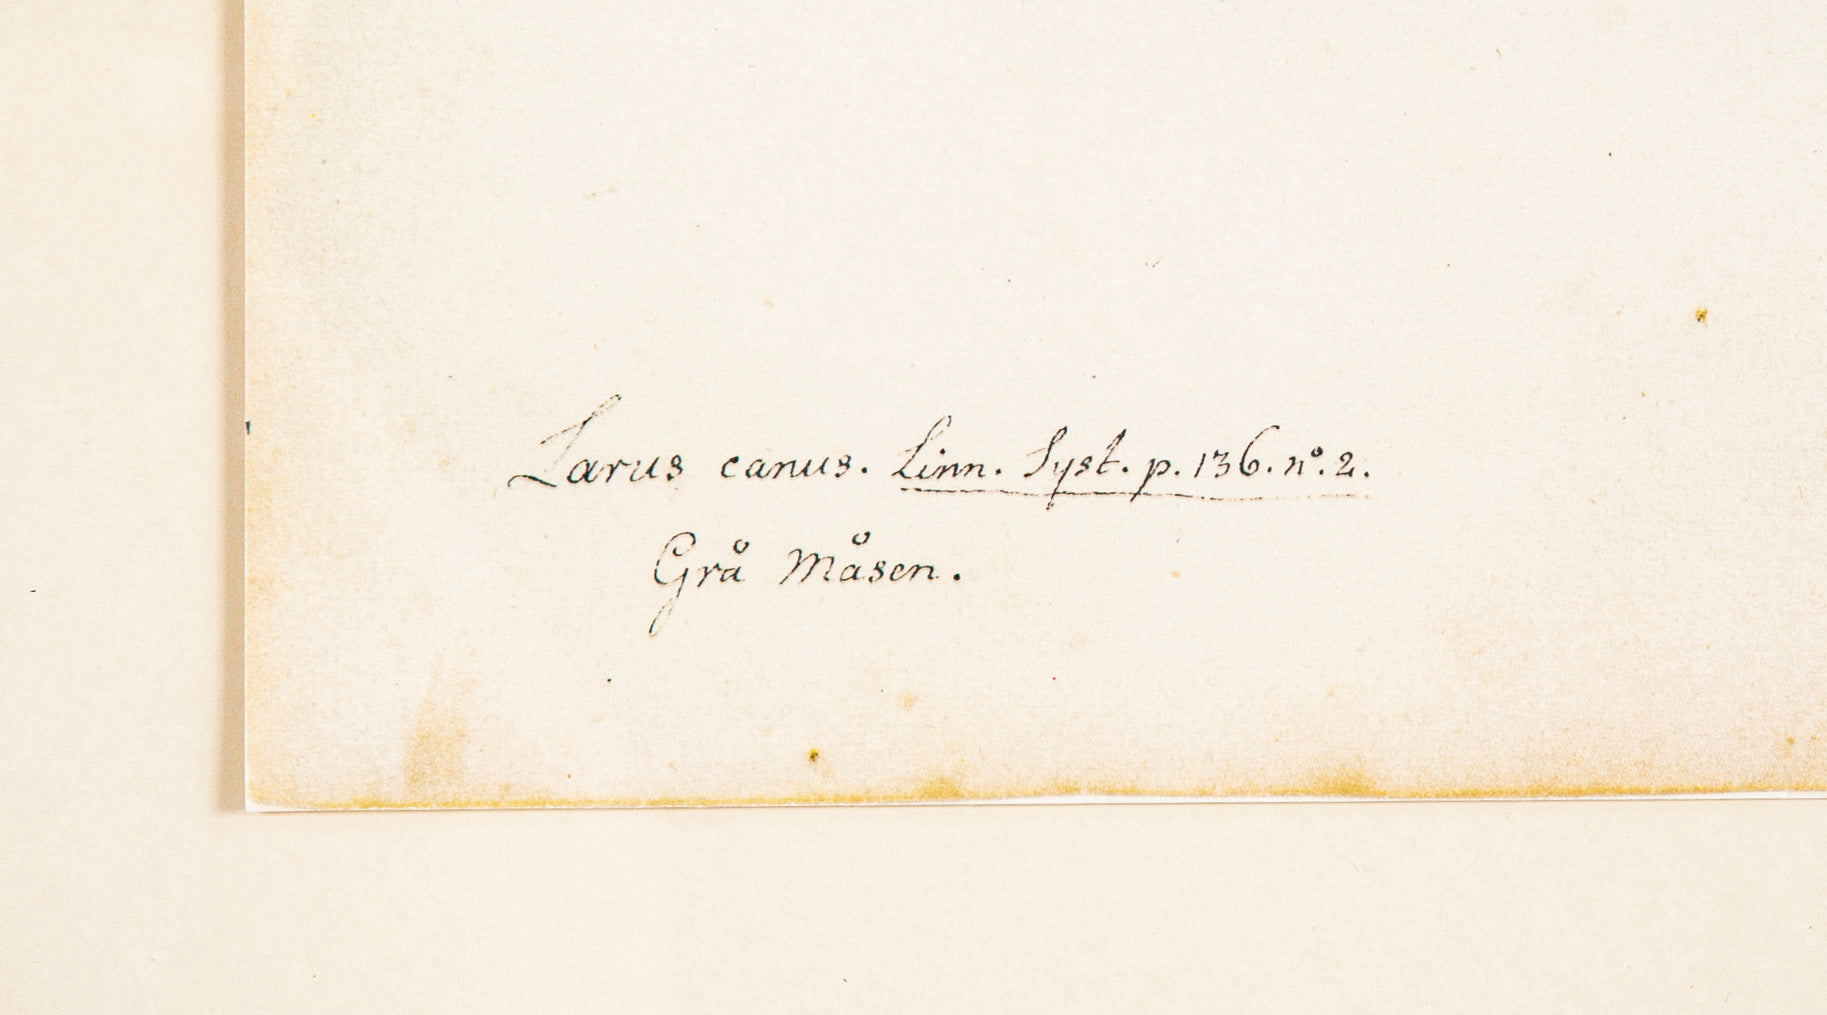 Larus canus. Linn. Syst. p. 136. nº. 2.
Grå Måsen.